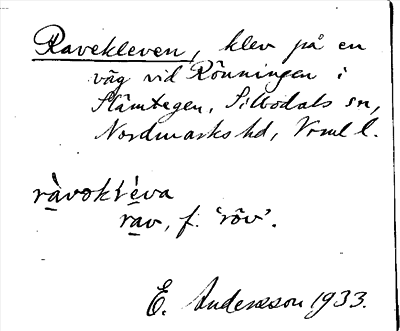 Ravekleven, klev på en
väg vid Rönningen i
Slämtegen, Silbodals sn,
Nordmarks hd, Vrml l.
ràvokléva
rav, f. 'röv'.
E. Andersson 1933.